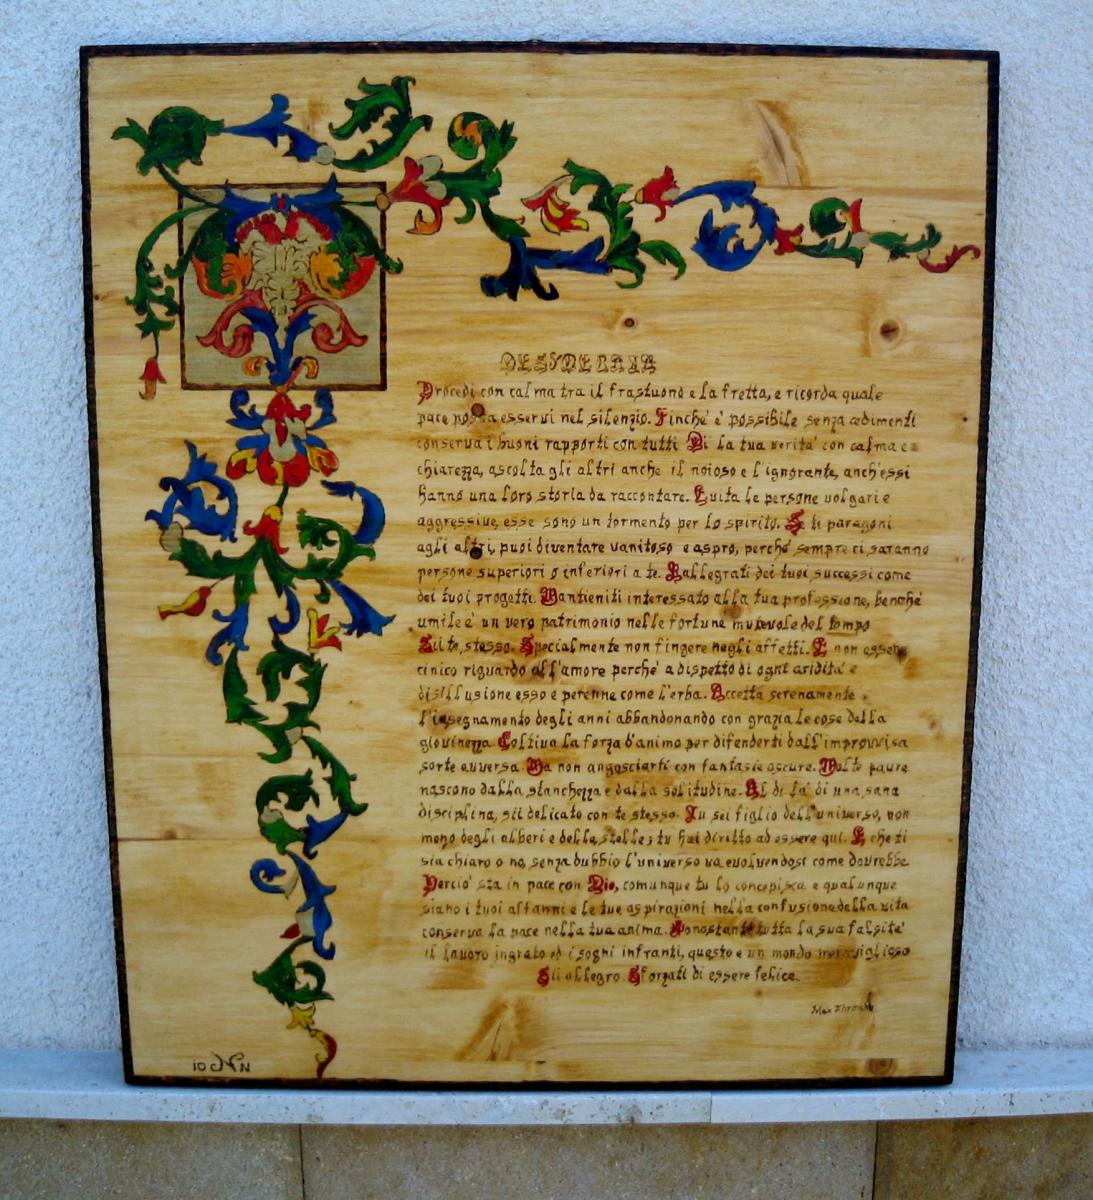 DESIDERATA
Procedi con calma tra il frastuono e la fretta, e ricorda quale
pace possa esservi nel silenzio. Finche' è possibile senza cedimenti
conserva i buoni rapporti con tutti Di la tua verita' con calma e
chiarezza, ascolta gli altri anche il noioso e l'ignorante, anch'essi
hanno una loro storia da raccontare. Evita le persone volgari e
aggressive, esse sono un tormento per lo spirito. Se ti paragoni
agli altri, puoi diventare vanitoso e aspro, perche' sempre ci saranno
persone superiori o inferiori a te. Rallegrati dei tuoi successi come
dei tuoi progetti. Mantieniti interessato alla tua professione, benche'
umile è un vero patrimonio nelle fortune mutevole del tempo
Sii te, stesso. Specialmente non fingere negli affetti. E non essere
cinico riguardo all'amore perche' a dispetto di ogni aridita' e
disillusione esso e perenne come l'erba. Accetta serenamente
l'insegnamento degli anni abbandonando con grazia le cose della
giovinezza Coltiva la forza d'animo per difenderti dall'improvvisa
sorte avversa. Ma non angosciarti con fantasie oscure. Molte paure
nascono dalla stanchezza e dalla solitudine. Al di la' di una, sana
disciplina, sii delicato con te stesso. Tu sei figlio dell'universo, non
meno degli alberi e delle, stelle; tu hai diritto ad essere qui. E che ti
sia chiaro o no, senza dubbio l'universo va evolvendosi come dovrebbe
Percio' sta in pace con Dio, comunque tu lo concepisca e qualunque
siano i tuoi affanni e le tue aspirazioni nella confusione della vita
conserva la pace nella tua anima. Nonostante tutta la sua falsita'
il lavoro ingrato ed i sogni infranti, questo e un mondo meraviglioso
Sii allegro. Sforzati di essere felice.
Max